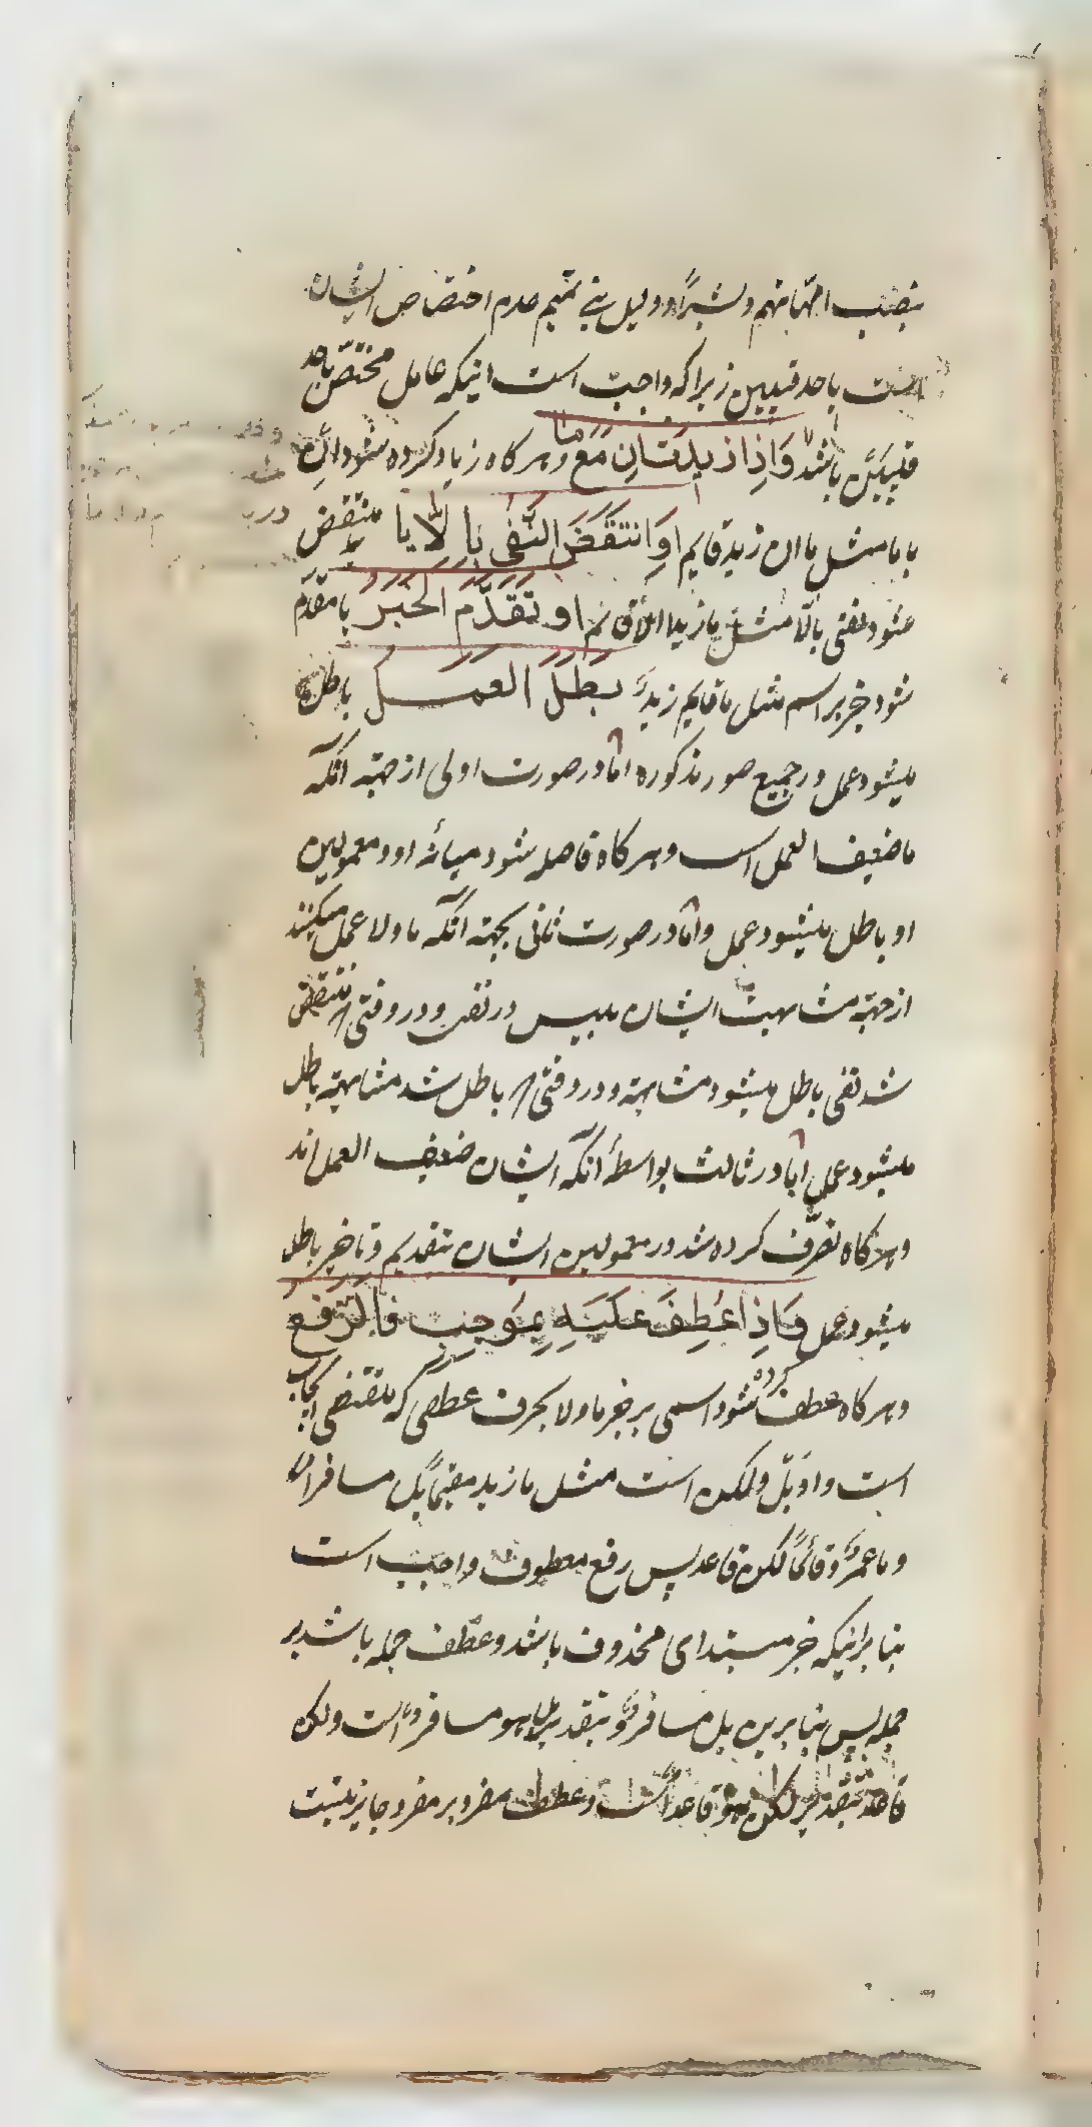 بنصب امهاتهم و بشراً و دلیل بنی تمیم عدم اختصاص ایشان
است باحد قبیلین زیرا که واجب است اینکه عامل مختص باحد
قبیلین باشد وَاِذَا زیدَتْ اِن مَعَ مَا و هر کاه زیاد کرده شود اِن
با ما مثل ما ان زید قایم اَوِ انتَقَضَ النَّفیُ بِاِلّا یا منتقض
شود نفی بالّا مثل ما زید الا قائم او تَقَدَّمَ الخَبَرُ یا مقدم
شود خبر بر اسم مثل ما قایم زیدٌ بَطَلَ العَمَلُ باطل
میشود عمل در جمیع صور مذکوره امّا در صورت اولی از جهة آنکه
ما ضعیف العمل است و هر کاه فاصله شود میانهٔ او و معمولین
او باطل میشود عمل و امّا در صورت ثانی بجهة آنکه ما و لا عمل میکنند
از جهة مشابهت ایشان بلیس در نفی و در وقتی که منتقض
شد نفی باطل میشود مشابهة و در وقتی که باطل شد مشابهة باطل
میشود عمل امّا در ثالث بواسطهٔ آنکه ایشان ضعیف العمل اند
و هر کاه تصرّف کرده شد در معمولین ایشان بتقدیم و تاخیر باطل
میشود عمل وَاِذَا عُطِفَ عَلَیهِ بِمُوجِبٍ فَالرَّفعُ
و هر کاه عطف کرده شود اسمی بر خبر ما و لا بحرف عطفی که مقتضی ایجاب
است و او بل و لکن است مثل ما زید مقیماً بل مسافر
و ما عمرٌو قائماً لکن قاعد پس رفع معطوف واجب است
بنا بر اینکه خبر مبتدای محذوف باشد و عطف جمله باشد بر
جمله پس بنا برین بل مسافرٌ بتقدیر بل هو مسافرٌ است و لکن
قاعد بتقدیر لکن هو قاعد است و عطف مفرد بر مفرد جایز نیست